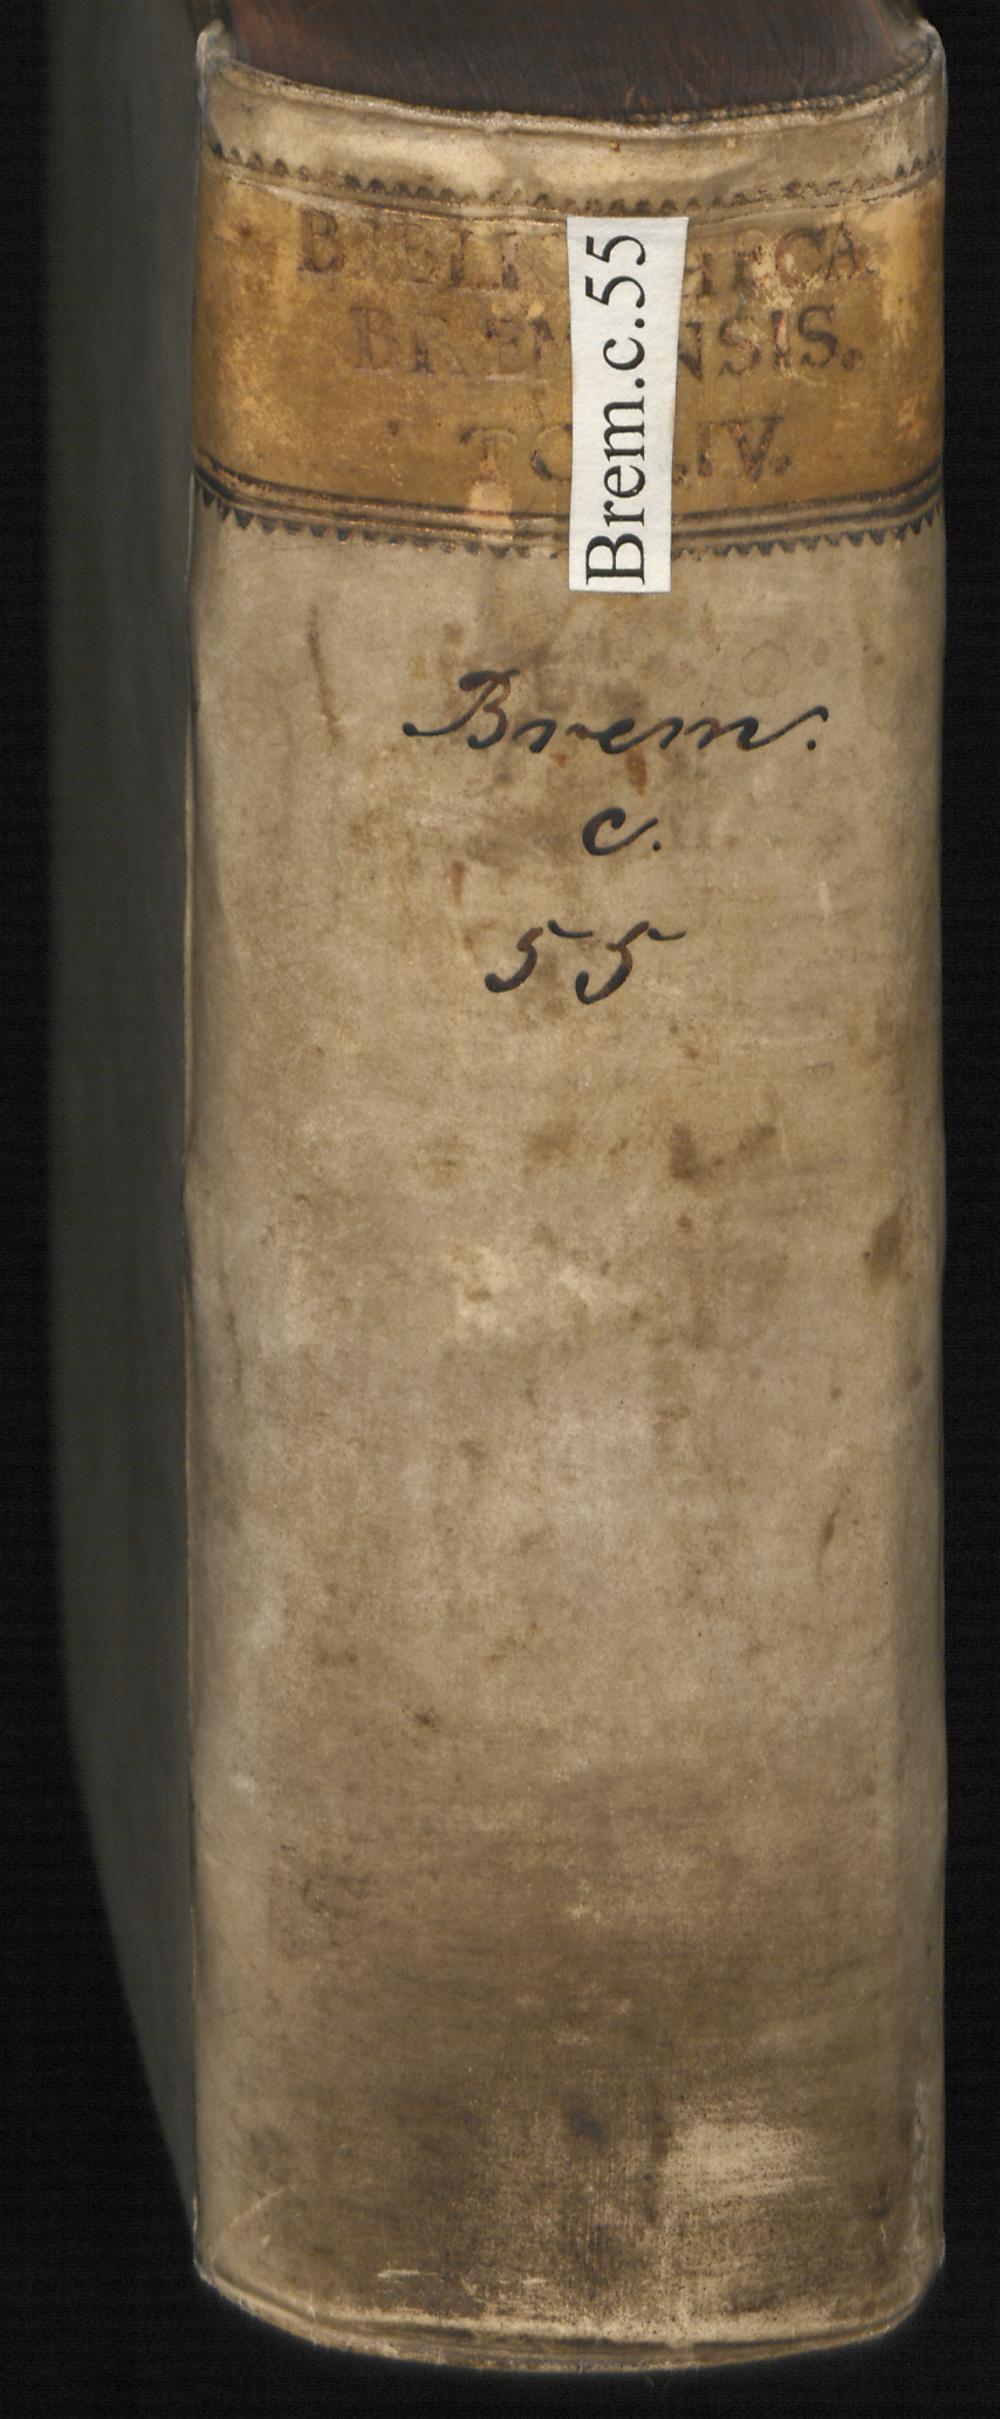 BIBLIOTHECA
BREMENSIS.
Brem.c.55
Brem.
c.
55